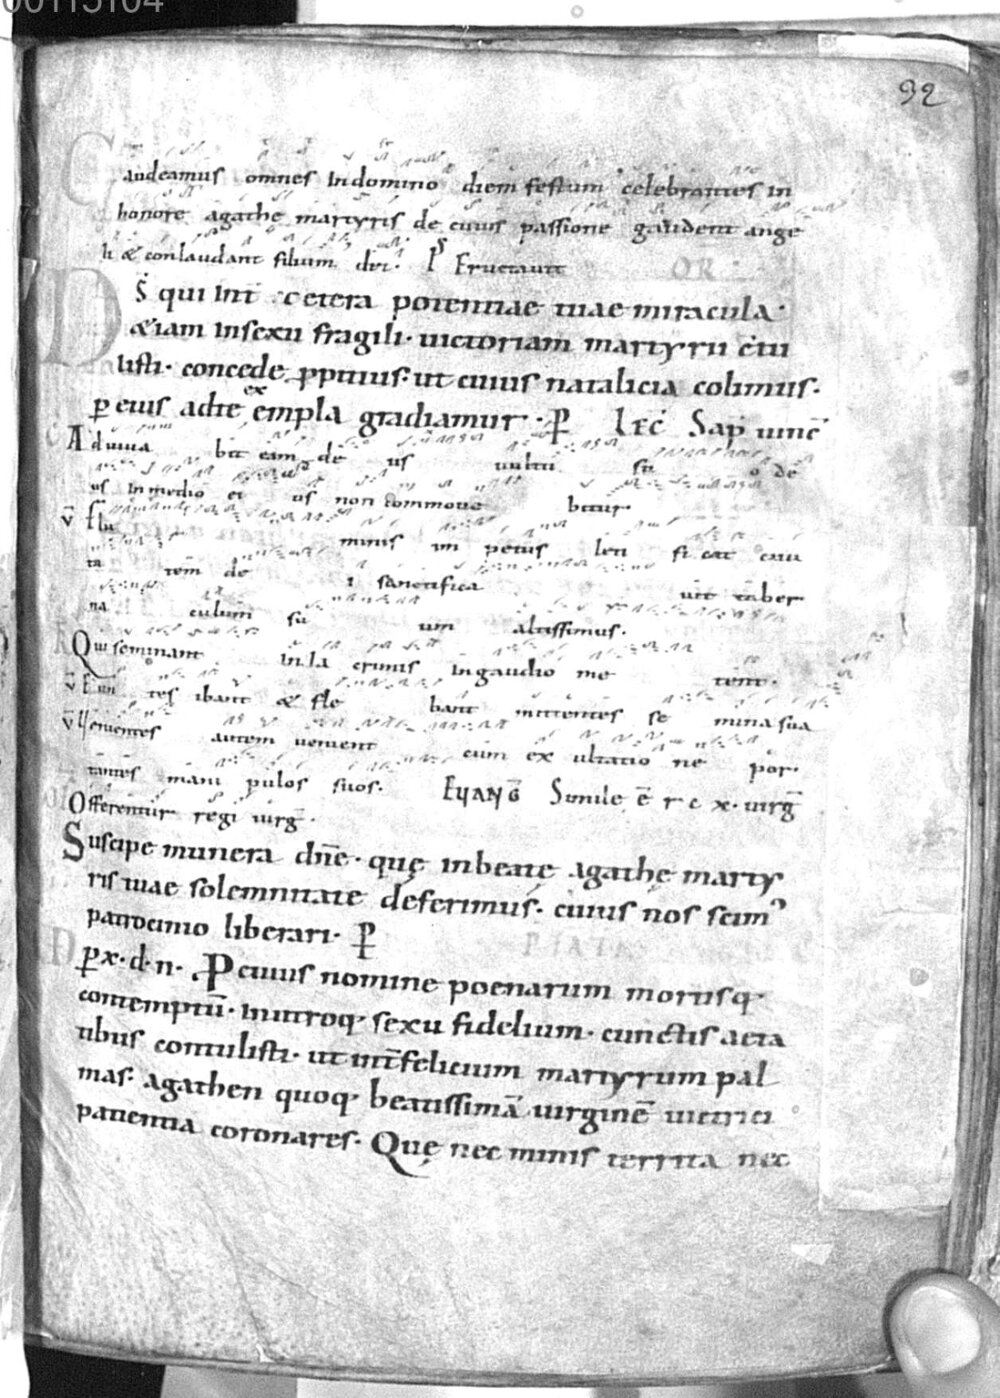 00115104
92
Gaudeamus omnes In domino diem festum celebrantes in
honore agathe martyris de cuius passione gaudent ange
li & conlaudant filium dei. ps Eructauit OR
DS qui Int cetera potentiae tuae miracula·
&iam Insexu fragili· uictoriam martyrii c̄tu
listi· concede ꝓpitius· ut cuius natalicia colimus·
ꝑ eius adte exempla gradiamur· ꝑ Lec̄ Sap̄ uinc̄
Adiuua bit eam de us uultu su o de
us In medio ei us non commoue bitur·
v̄ Flu minis im petus leti fi cat ciui
ta tem de i sanctifica uit taber
na culum su um altissimus·
Qui seminant In la crimis Ingaudio me tent·
v̄ Eun tes ibant & fle bant mittentes se mina sua
v̄ Uenientes autem uenient cum ex ultatio ne por·
tantes mani pulos suos. Euang̅ Simile ē r c x· uirg̅
Offerentur regi uirg̅·
Suscipe munera dn̄e· quę inbeatę agathę marty
ris tuae solemnitate deferimus· cuius nos scim᾿
patrocinio liberari· ꝑ
ꝑ x· d· n· Ꝑ cuius nomine poenarum mortisq·
contemptū· Inutroq· sexu fidelium· cunctis aeta
tibus contulisti· ut int̄ felicium martyrum pal
mas· agathen quoq· beatissimā uirginē uictrici
patientia coronares· Quę nec minis territa nec